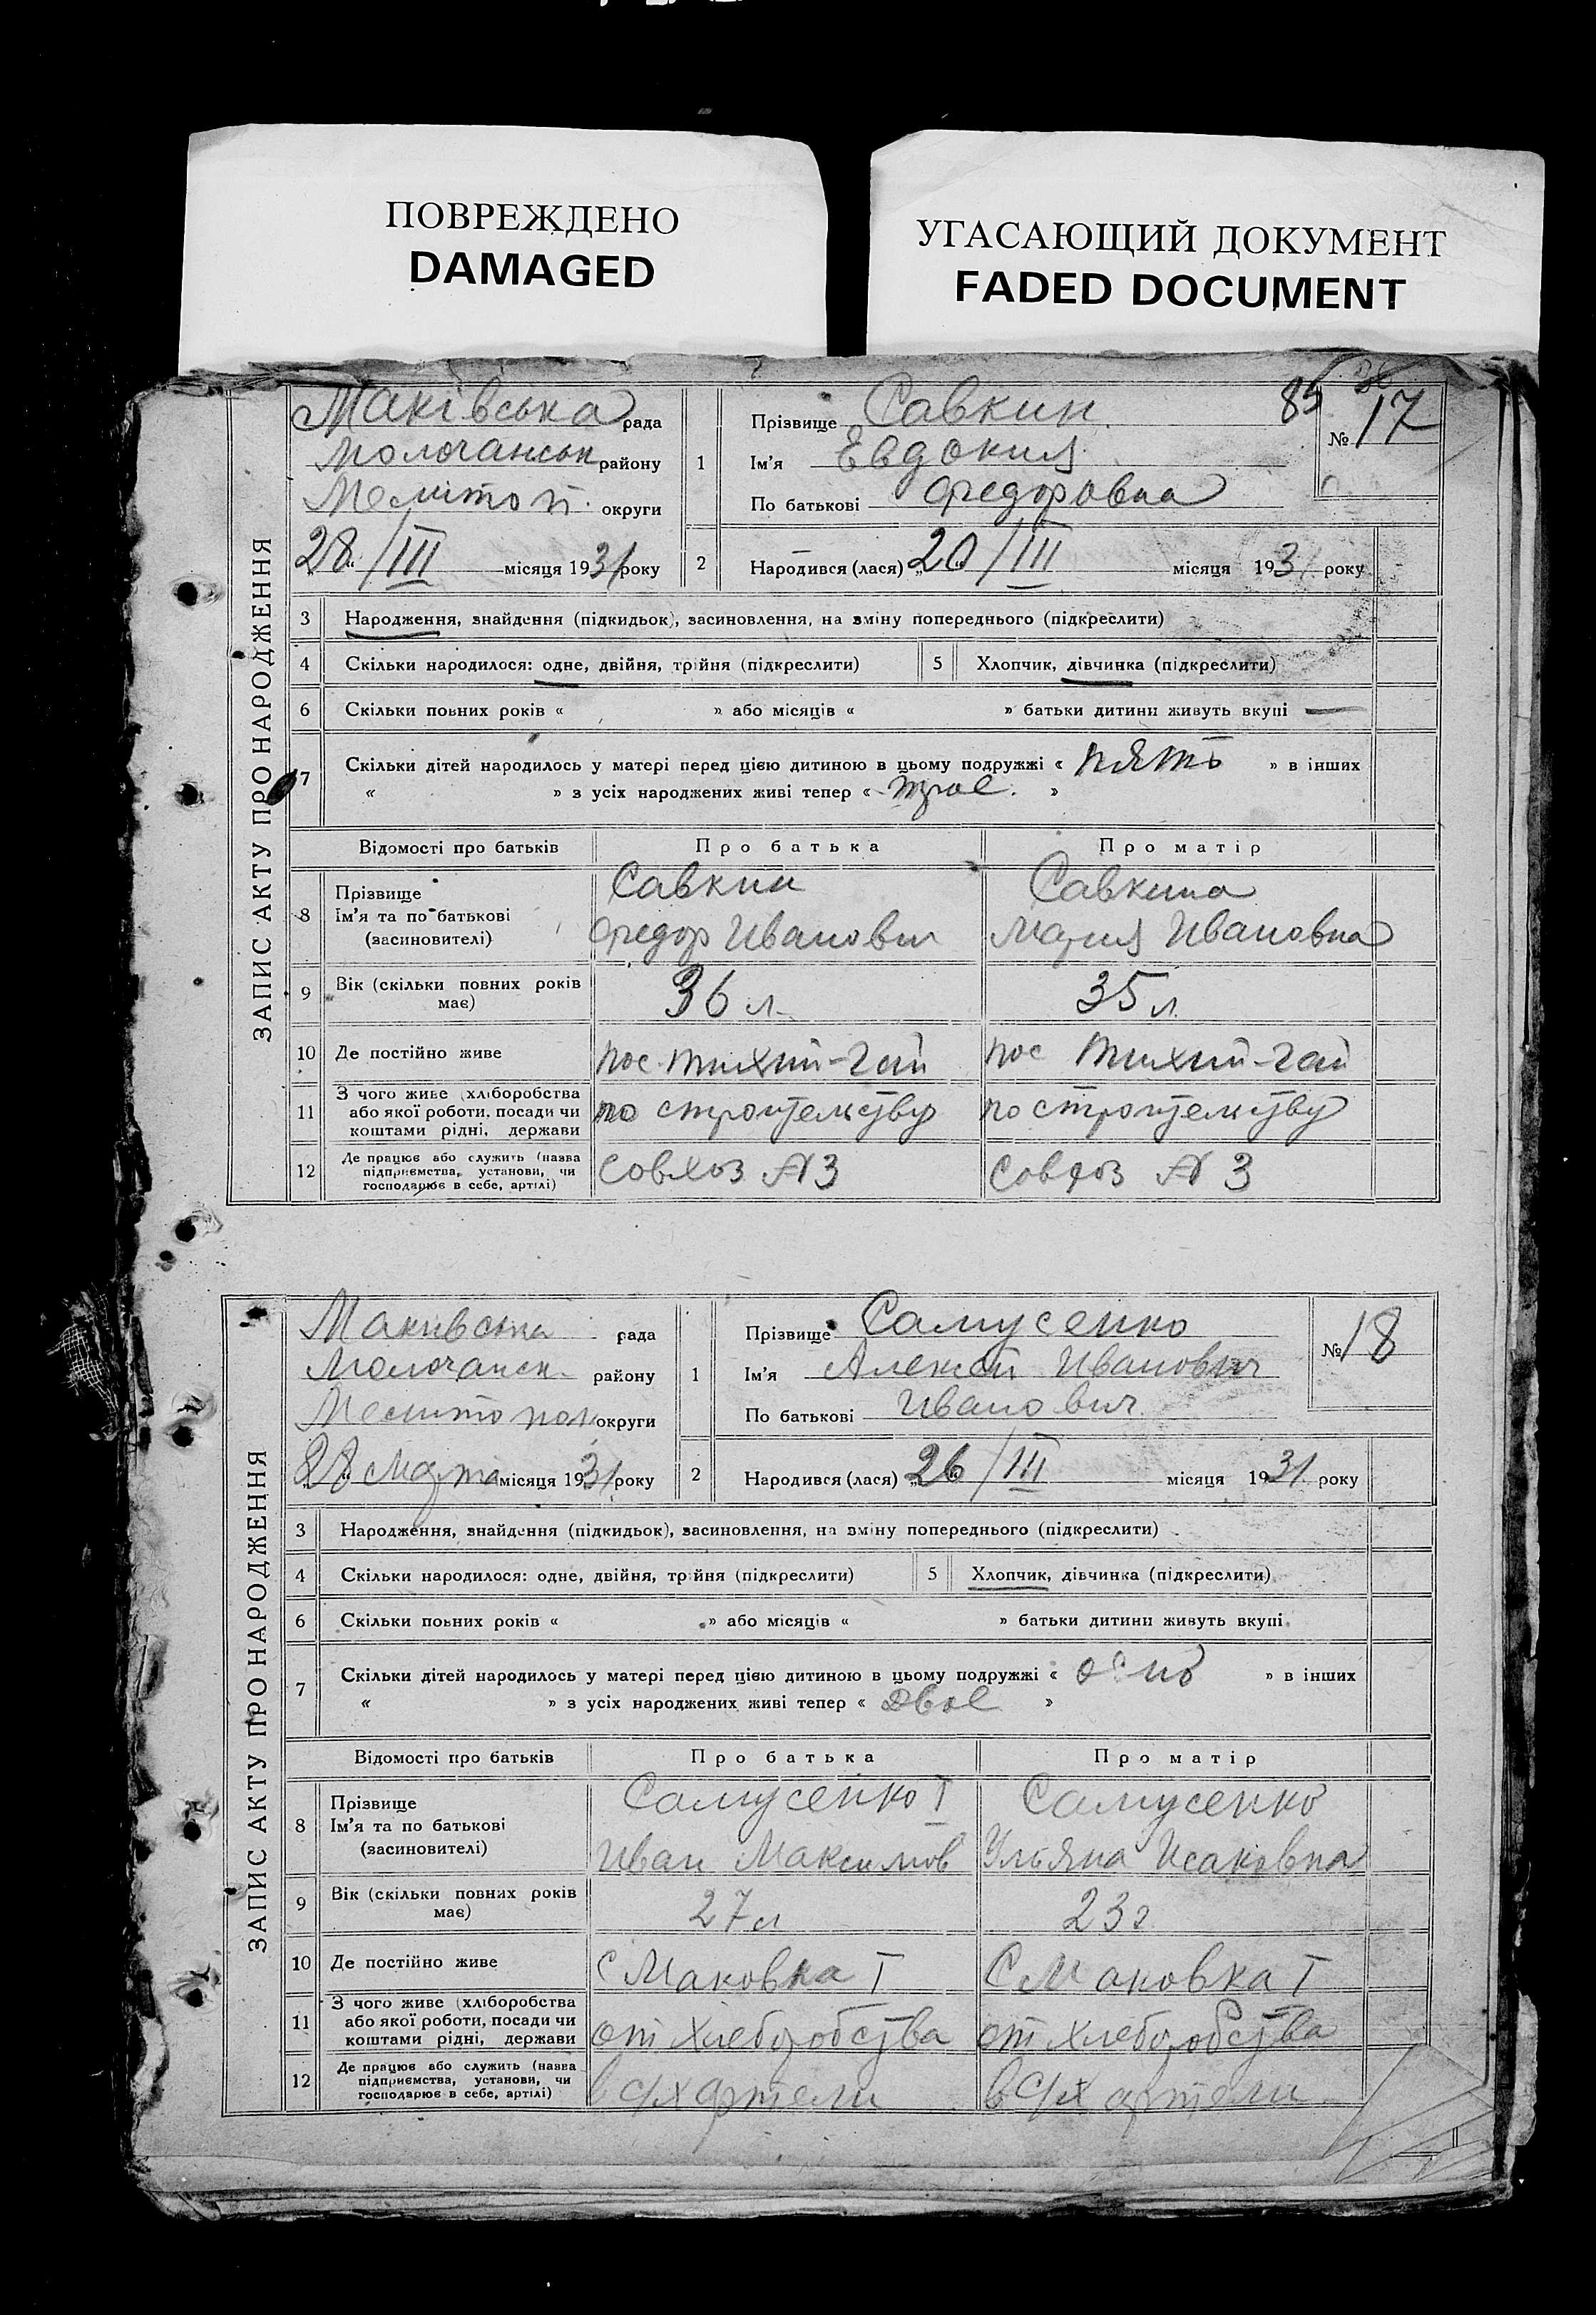 ПОВРЕЖДЕНО
DAMAGED
УГАСАЮЩИЙ ДОКУМЕНТ
FADED DOCUMENT
ЗАПИС АКТУ ПРО НАРОДЖЕННЯ
Маківська рада
Молочанськ району
Мелитоп. округи
28/III місяця 1931 року
85
№ 17
1 Прізвище Савкин
Ім'я Евдокия
По батькові Федоровна
2 Народився (лася) „20/III місяця 1931 року
3 Народження, знайдення (підкидьок), засиновлення, на зміну попереднього (підкреслити)
4 Скільки народилося: одне, двійня, трійня (підкреслити) 5 Хлопчик, дівчинка (підкреслити)
6 Скільки повних років « » або місяців « » батьки дитини живуть вкупі —
7 Скільки дітей народилось у матері перед цією дитиною в цьому подружжі « пять » в інших
« » з усіх народжених живі тепер « трое. »
Відомості про батьків Про батька Про матір
8 Прізвище Савкин Савкина
Ім'я та по батькові
(засиновителі) Федор Иванович Мария Ивановна
9 Вік (скільки повних років 36 л. 35 л.
має)
10 Де постійно живе пос. Тихий-Гай пос Тихий-Гай
11 З чого живе (хліборобства
або якої роботи, посади чи по строительству по строительству
коштами рідні, держави
12 Де працює або служить (назва
підприємства, установи, чи Совхоз № 3 Совхоз № 3
господарює в себе, артілі)
ЗАПИС АКТУ ПРО НАРОДЖЕННЯ
Макивська рада
Молочанск. району
Мелитопол округи
28 Марта місяця 1931 року
№ 18
1 Прізвище Самусенко
Ім'я Алексей Иванович
По батькові Иванович
2 Народився (лася) „26/III місяця 1931 року
3 Народження, знайдення (підкидьок), засиновлення, на зміну попереднього (підкреслити)
4 Скільки народилося: одне, двійня, трійня (підкреслити) 5 Хлопчик, дівчинка (підкреслити)
6 Скільки повних років « » або місяців « » батьки дитини живуть вкупі
7 Скільки дітей народилось у матері перед цією дитиною в цьому подружжі « » в інших
« » з усіх народжених живі тепер « двое »
Відомості про батьків Про батька Про матір
8 Прізвище Самусенко I Самусенко
Ім'я та по батькові
(засиновителі) Иван Максимов Ульяна Исаковна
9 Вік (скільки повних років 27 л 23 г
має)
10 Де постійно живе С Маковка I С Маковка I
11 З чого живе (хліборобства
або якої роботи, посади чи от хлеборобства от хлеборобства
коштами рідні, держави
12 Де працює або служить (назва
підприємства, установи, чи в с/х артели в с/х артели
господарює в себе, артілі)